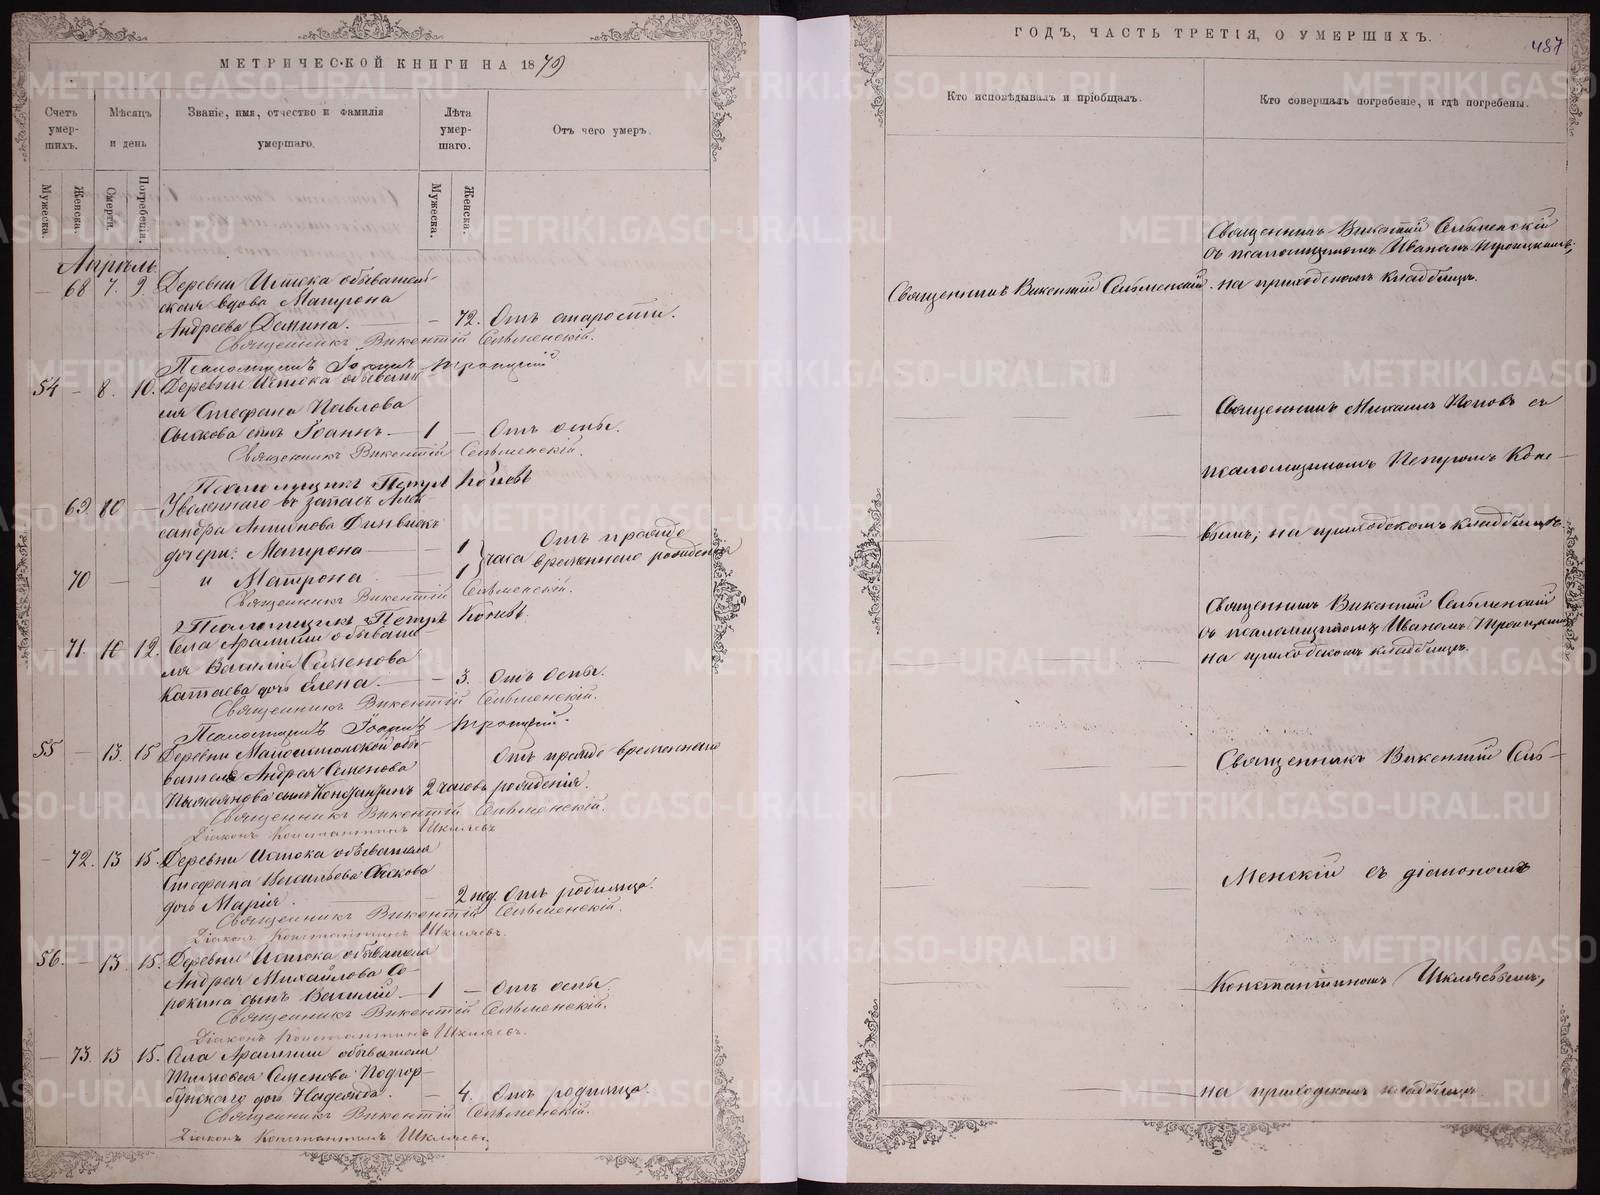 МЕТРИЧЕСКОЙ КНИГИ НА 1879
Счетъ умер-шихъ.
Мѣсяцъ и день
Званіе, имя, отчество и фамилія умершаго.
Лѣта умер-шаго.
Отъ чего умеръ.
Мужеска.
Женска.
Смерти.
Погребенія.
Мужеска.
Женска.
Апрѣль
68 7. 9. Деревни Истока обывательская
вдова Матрона
Андреева Демина. — 72. Отъ старости.
Священникъ Викентій Сельменскій.
Псаломщикъ Іоаннъ Троицкій
54 — 8. 10. Деревни Истока обывате
ля Стефана Павлова
Сыскова сынъ Іоаннъ — 1 — Отъ оспы.
Священникъ Викентій Сельменскій.
Псаломщикъ Петръ Коневъ
69. 10 — Уволеннаго въ запасъ Алек
сандра Антонова
дочери: Матрона — 1
часа
Отъ прежде
временнаго рожденія
70 — и Матрона 1
Священникъ Викентій Сельменскій.
Псаломщикъ Петръ Коневъ.
71. 10 12. Села Арамили обывате
ля Василія Семенова
Катаева дочь Елена. — 3. Отъ оспы.
Священникъ Викентій Сельменскій.
Псаломщикъ Іоаннъ Троицкій.
55 — 13. 15 Деревни обы-
вателя Андрея Семенова
сынъ Константинъ 2 часовъ
Отъ прежде временнаго
рожденія.
Священникъ Викентій Сельменскій.
Діаконъ Константинъ Шкляевъ
72. 13 15. Деревни Истока обывателя
Стефана Васильева Сыскова
дочь Марія. 2 нед. Отъ родимца.
Священникъ Викентій Сельменскій.
Діаконъ Константинъ Шкляевъ.
56. — 13. 15. Деревни Истока обывателя
Андрея Михайлова Со-
рокина сынъ Василій — 1 — Отъ оспы.
Священникъ Викентій Сельменскій.
Діаконъ Константинъ Шкляевъ.
— 73. 13 15. Села Арамили обывателя
Семенова Подгор-
бунскаго дочь Надежда. — 4. Отъ родимца.
Священникъ Викентій Сельменскій.
Діаконъ Константинъ Шкляевъ.
ГОДЪ, ЧАСТЬ ТРЕТІЯ, О УМЕРШИХЪ.
487
Кто исповѣдывалъ и пріобщалъ.
Кто совершалъ погребеніе, и гдѣ погребены.
Священникъ Викентій Сельменскій
съ псаломщикомъ Иваномъ Троицкимъ;
Священникъ Викентій Сельменскій. на приходскомъ кладбищѣ.
Священникъ Михаилъ Поповъ съ
псаломщикомъ Петромъ Коне-
вымъ; на приходскомъ кладбищѣ.
Священникъ Викентій Сельменскій
съ псаломщикомъ Иваномъ Троицкимъ
на приходскомъ кладбищѣ.
Священникъ Викентій Сель-
менскій съ діакономъ
Константиномъ Шкляевымъ,
на приходскомъ кладбищѣ
METRIKI.GASO-URAL.RU